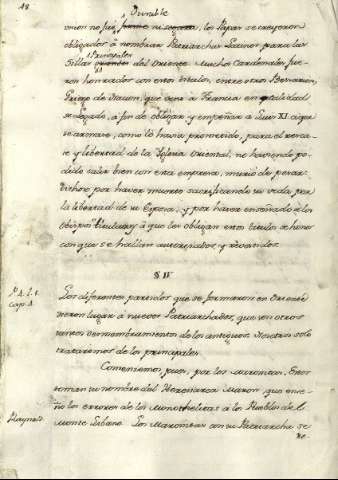 18
Durable
union no fué fuerte ni segura, los Papas se creyeron
obligados à nombrar Patriarchas Latinos para las
Principales
Sillas del Oriente. Mucho Cardenales fue-
ron honrados con este titulo, entre otros Bernardin,
que vino à Francia en calidad
de Legado, a fin de obligar, y empeñar à Luis XI. à que
se armase, como lo havia prometido, para el resca-
te y libertad de la Iglesia Oriental, no haviendo po-
dido salir bien con esta empresa, murió de pesar.
Dichoso por haver muerto sacrificando su vida por
la libertad de su Esposa, y por haver enseñado à los
Obispos titulares à que les obligan estos titulos de honor
con que se hallan autorizados, y revestidos.
§ IV
P. 1. L. 1.
Cap. 4.
Los diferentes partidos que se formaron en Oriente
dieron lugar à nuevos Patriarchados, que son otros
tantos desmembramientos de los antiguos. Nosotros solo
trataremos de los principales.
Comencemos pues, por los Maronitas. Estos
toman su nombre del Heresiarca Maron, que ense-
ño los errores de los Monothelitas à los Pueblos de el
Raynald.
Monte Libano. Los Maronitas con su Patriarcha se
re-